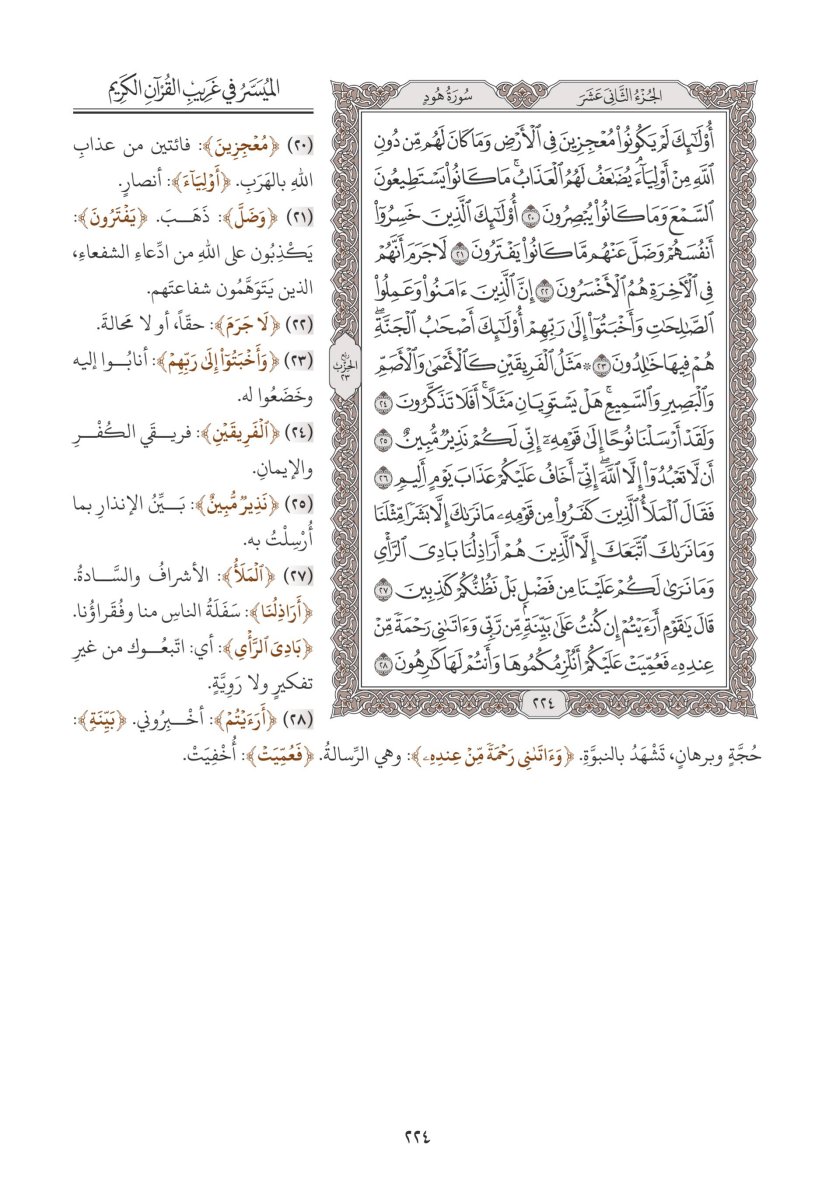 الجُزْءُ الثَّانِيَ عَشَرَ
سُورَةُ هُودٍ
أُوْلَٰٓئِكَ لَمۡ يَكُونُواْ مُعۡجِزِينَ فِي ٱلۡأَرۡضِ وَمَا كَانَ لَهُم مِّن دُونِ
ٱللَّهِ مِنۡ أَوۡلِيَآءَۘ يُضَٰعَفُ لَهُمُ ٱلۡعَذَابُۚ مَا كَانُواْ يَسۡتَطِيعُونَ
ٱلسَّمۡعَ وَمَا كَانُواْ يُبۡصِرُونَ ٢٠ أُوْلَٰٓئِكَ ٱلَّذِينَ خَسِرُوٓاْ
أَنفُسَهُمۡ وَضَلَّ عَنۡهُم مَّا كَانُواْ يَفۡتَرُونَ ٢١ لَا جَرَمَ أَنَّهُمۡ
فِي ٱلۡأٓخِرَةِ هُمُ ٱلۡأَخۡسَرُونَ ٢٢ إِنَّ ٱلَّذِينَ ءَامَنُواْ وَعَمِلُواْ
ٱلصَّٰلِحَٰتِ وَأَخۡبَتُوٓاْ إِلَىٰ رَبِّهِمۡ أُوْلَٰٓئِكَ أَصۡحَٰبُ ٱلۡجَنَّةِۖ
هُمۡ فِيهَا خَٰلِدُونَ ٢٣ ۞ مَثَلُ ٱلۡفَرِيقَيۡنِ كَٱلۡأَعۡمَىٰ وَٱلۡأَصَمِّ
وَٱلۡبَصِيرِ وَٱلسَّمِيعِۚ هَلۡ يَسۡتَوِيَانِ مَثَلًاۚ أَفَلَا تَذَكَّرُونَ ٢٤
وَلَقَدۡ أَرۡسَلۡنَا نُوحًا إِلَىٰ قَوۡمِهِۦٓ إِنِّي لَكُمۡ نَذِيرٞ مُّبِينٌ ٢٥
أَن لَّا تَعۡبُدُوٓاْ إِلَّا ٱللَّهَۖ إِنِّيٓ أَخَافُ عَلَيۡكُمۡ عَذَابَ يَوۡمٍ أَلِيمٖ ٢٦
فَقَالَ ٱلۡمَلَأُ ٱلَّذِينَ كَفَرُواْ مِن قَوۡمِهِۦ مَا نَرَىٰكَ إِلَّا بَشَرٗا مِّثۡلَنَا
وَمَا نَرَىٰكَ ٱتَّبَعَكَ إِلَّا ٱلَّذِينَ هُمۡ أَرَاذِلُنَا بَادِيَ ٱلرَّأۡيِ
وَمَا نَرَىٰ لَكُمۡ عَلَيۡنَا مِن فَضۡلِۭ بَلۡ نَظُنُّكُمۡ كَٰذِبِينَ ٢٧
قَالَ يَٰقَوۡمِ أَرَءَيۡتُمۡ إِن كُنتُ عَلَىٰ بَيِّنَةٖ مِّن رَّبِّي وَءَاتَىٰنِي رَحۡمَةٗ مِّنۡ
عِندِهِۦ فَعُمِّيَتۡ عَلَيۡكُمۡ أَنُلۡزِمُكُمُوهَا وَأَنتُمۡ لَهَا كَٰرِهُونَ ٢٨
٢٢٤
رُبع
الحِزْبِ
٢٣
المُيَسَّرُ في غَرِيبِ القُرْآنِ الكَرِيم
(٢٠) ﴿مُعۡجِزِينَ﴾: فائتين من عذابِ
اللهِ بالهَرَبِ. ﴿أَوۡلِيَآءَ﴾: أنصارٍ.
(٢١) ﴿وَضَلَّ﴾: ذَهَبَ. ﴿يَفۡتَرُونَ﴾:
يَكْذِبُون على اللهِ من ادِّعاءِ الشفعاءِ،
الذين يَتَوَهَّمُون شفاعتَهم.
(٢٢) ﴿لَا جَرَمَ﴾: حقاً، أو لا مَحَالةَ.
(٢٣) ﴿وَأَخۡبَتُوٓاْ إِلَىٰ رَبِّهِمۡ﴾: أنابُوا إليه
وخَضَعُوا له.
(٢٤) ﴿ٱلۡفَرِيقَيۡنِ﴾: فريقَي الكُفْرِ
والإيمانِ.
(٢٥) ﴿نَذِيرٞ مُّبِينٌ﴾: بَيِّنُ الإنذارِ بما
أُرْسِلْتُ به.
(٢٧) ﴿ٱلۡمَلَأُ﴾: الأشرافُ والسَّادةُ.
﴿أَرَاذِلُنَا﴾: سَفَلَةُ الناسِ منا وفُقَراؤُنا.
﴿بَادِيَ ٱلرَّأۡيِ﴾: أي: اتّبعُوك من غيرِ
تفكيرٍ ولا رَوِيَّةٍ.
(٢٨) ﴿أَرَءَيۡتُمۡ﴾: أخْبِرُوني. ﴿بَيِّنَةٖ﴾:
حُجَّةٍ وبرهانٍ، تَشْهَدُ بالنبوَّةِ. ﴿وَءَاتَىٰنِي رَحۡمَةٗ مِّنۡ عِندِهِۦ﴾: وهي الرِّسالةُ. ﴿فَعُمِّيَتۡ﴾: أُخْفِيَتْ.
٢٢٤